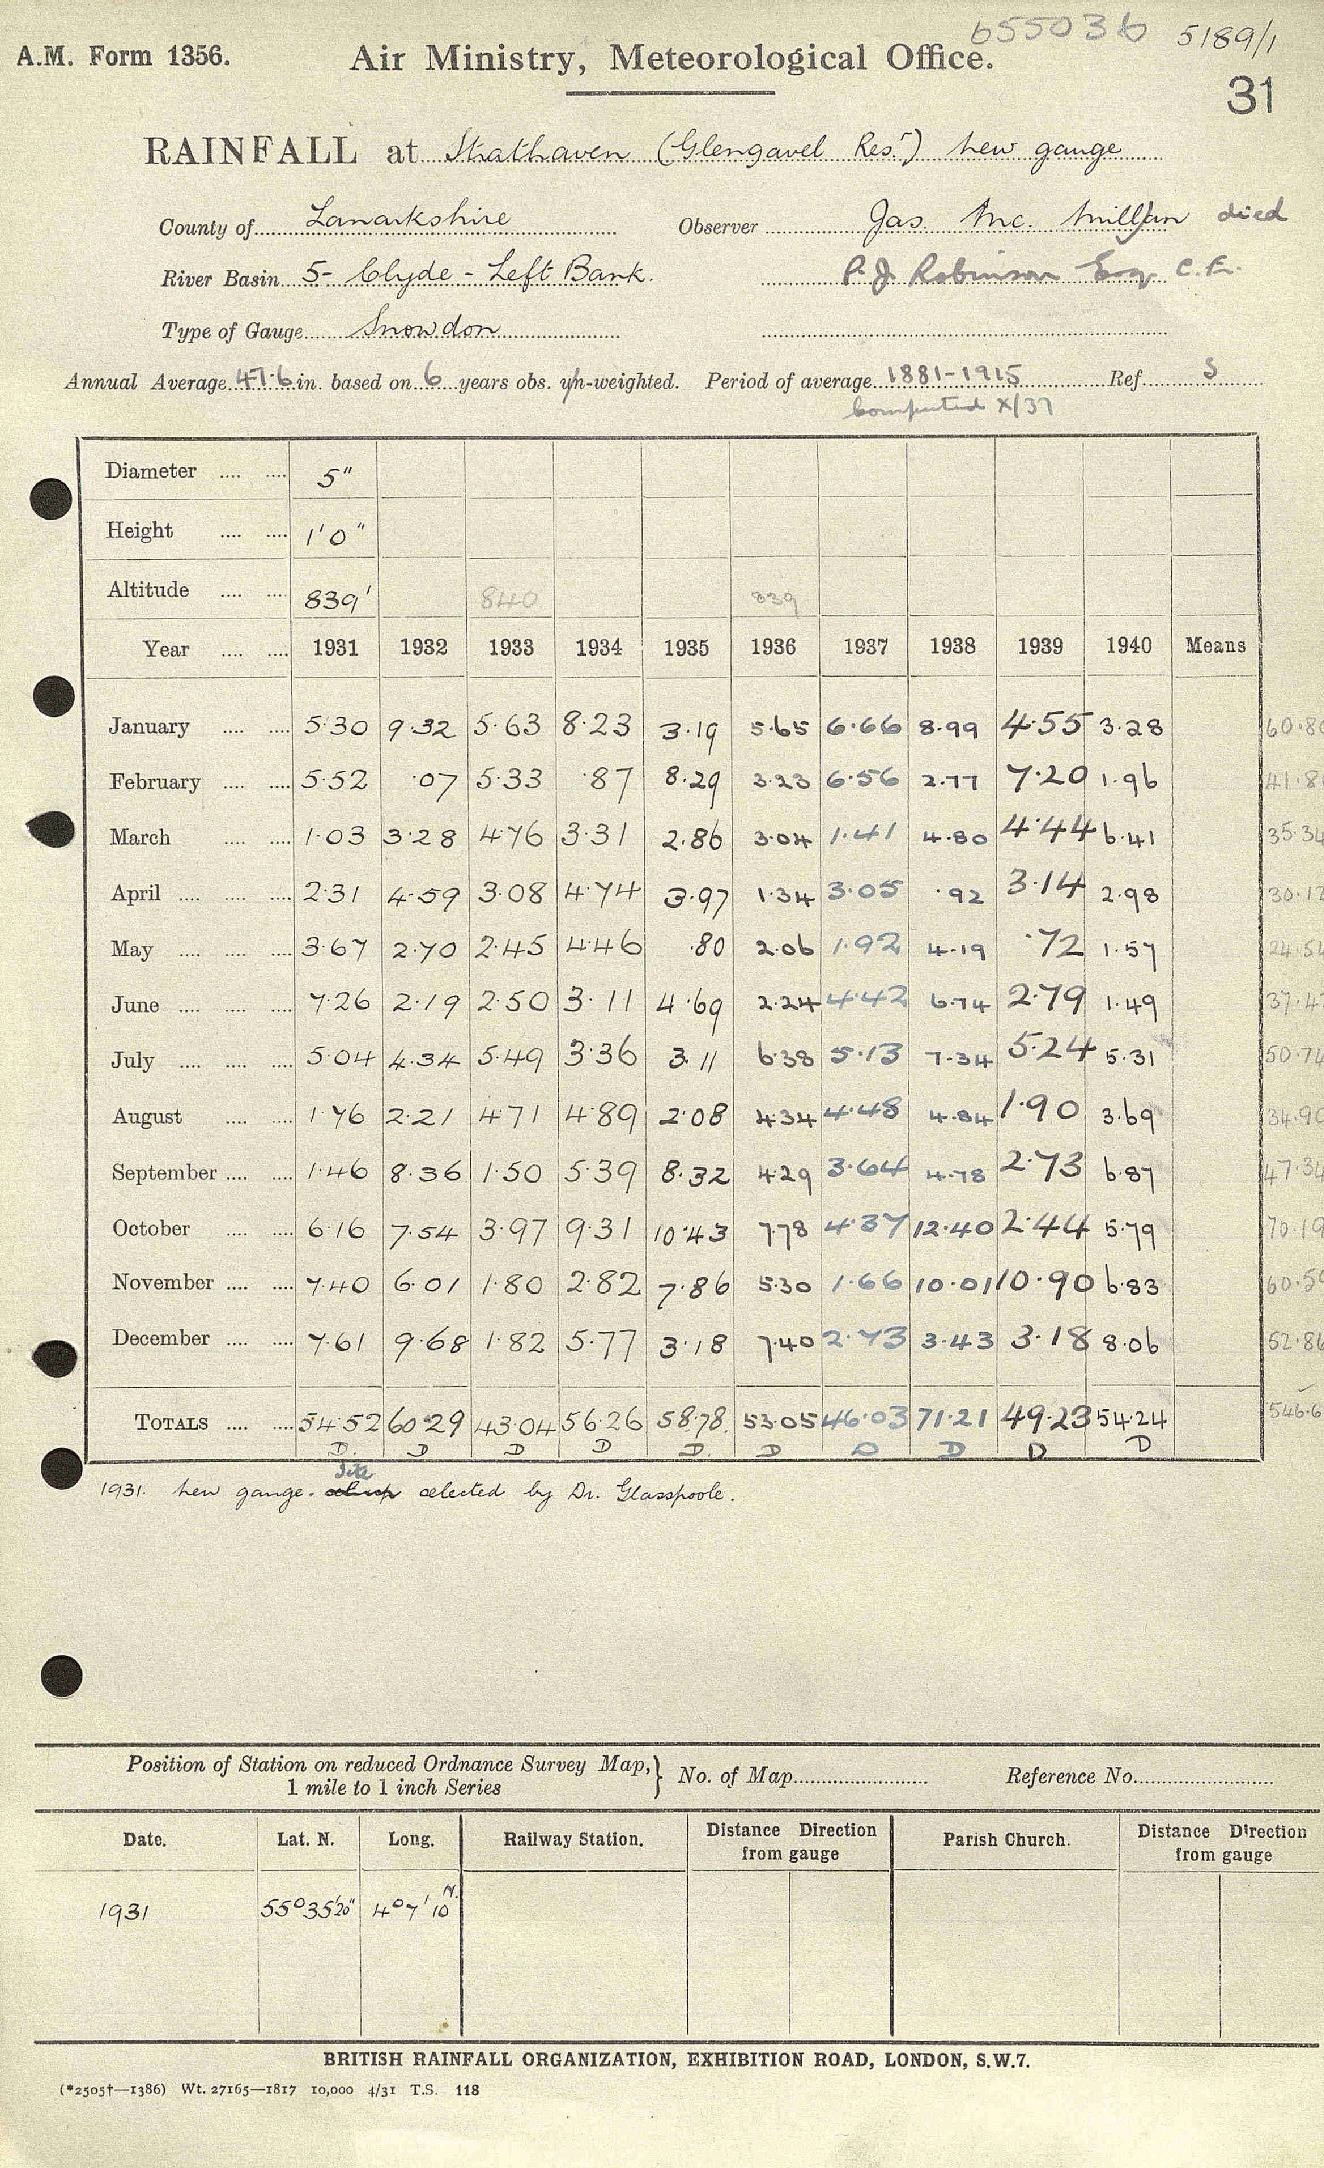 655036 5189/1
A.M. Form 1356. Air Ministry, Meteorological Office.
31
RAINFALL at Strathaven (Glengavel Resr) new gauge
County of Lanarkshire Observer Jas. Mc. Millan died
River Basin 5- Clyde - Left Bank. P. J. Robinson Esq C.E.
Type of Gauge Snowdon
Annual Average 47.6 in. based on 6 years obs. un-weighted. Period of average 1881-1915 Ref. S
Computed X/37
Diameter .... .... 5"
Height .... .... 1'0"
Altitude .... .... 839' 840 839
Year .... .... 1931 1932 1933 1934 1935 1936 1937 1938 1939 1940 Means
January .... .... 5.30 9.32 5.63 8.23 3.19 5.65 6.66 8.99 4.55 3.28 60.80
February .... .... 5.52 .07 5.33 .87 8.29 3.23 6.56 2.77 7.20 1.96 41.80
March .... .... 1.03 3.28 4.76 3.31 2.86 3.04 1.41 4.80 4.44 6.41 35.34
April .... .... .... 2.31 4.59 3.08 4.74 3.97 1.34 3.05 .92 3.14 2.98 30.12
May .... .... .... 3.67 2.70 2.45 4.46 .80 2.06 1.92 4.19 .72 1.57 24.54
June .... .... .... 7.26 2.19 2.50 3.11 4.69 2.24 4.42 6.74 2.79 1.49 37.43
July .... .... .... 5.04 4.34 5.49 3.36 3.11 6.38 5.13 7.34 5.24 5.31 50.74
August .... .... 1.76 2.21 4.71 4.89 2.08 4.34 4.48 4.84 1.90 3.69 34.90
September .... .... 1.46 8.36 1.50 5.39 8.32 4.29 3.64 4.78 2.73 6.87 47.34
October .... .... 6.16 7.54 3.97 9.31 10.43 7.78 4.37 12.40 2.44 5.79 70.19
November .... .... 7.40 6.01 1.80 2.82 7.86 5.30 1.66 10.01 10.90 6.83 60.59
December .... .... 7.61 9.68 1.82 5.77 3.18 7.40 2.73 3.43 3.18 8.06 52.86
TOTALS .... .... 54.52 60.29 43.04 56.26 58.78 53.05 46.03 71.21 49.23 54.24 546.6
D. D D D D. D D D D D
site
1931. new gauge. selected by Dr. Glasspoole.
Position of Station on reduced Ordnance Survey Map, } No. of Map Reference No.
1 mile to 1 inch Series
Date. Lat. N. Long. Railway Station. Distance Direction from gauge Parish Church. Distance Direction from gauge
1931 55°35'20" 4°7'10"
BRITISH RAINFALL ORGANIZATION, EXHIBITION ROAD, LONDON, S.W.7.
(*2505†—1386) Wt. 27165—1817 10,000 4/31 T.S. 118